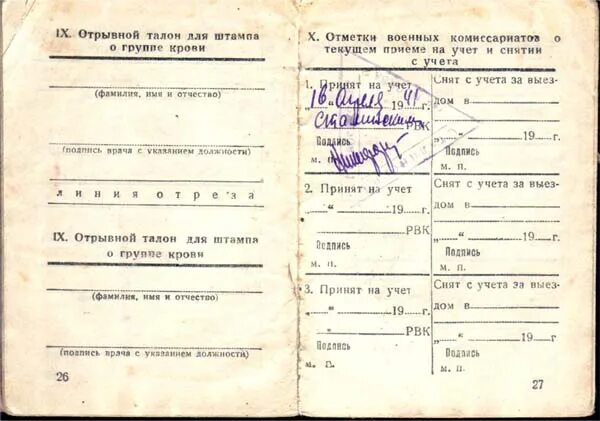 IX. Отрывной талон для штампа
о группе крови
(фамилия, имя и отчество)
(подпись врача с указанием должности)
линия отреза
IX. Отрывной талон для штампа
о группе крови
(фамилия, имя и отчество)
(подпись врача с указанием должности)
26
X. Отметки военных комиссариатов о
текущем приеме на учет и снятии
с учета
1. Принят на учет
16 апреля 1941 г.
Сталинским РВК
Подпись
М. П.
Снят с учета за выез-
дом в
„ “ 19 г.
Подпись
м. п.
2. Принят на учет
„ “ 19 г.
РВК
Подпись
м. п.
Снят с учета за выез-
дом в
„ “ 19 г.
Подпись
М. П.
3. Принят на учет
„ “ 19 г.
„ РВК
Подпись
м. П.
Снят с учета за выез-
дом в
„ “ 19 г.
Подпись
м. п.
27